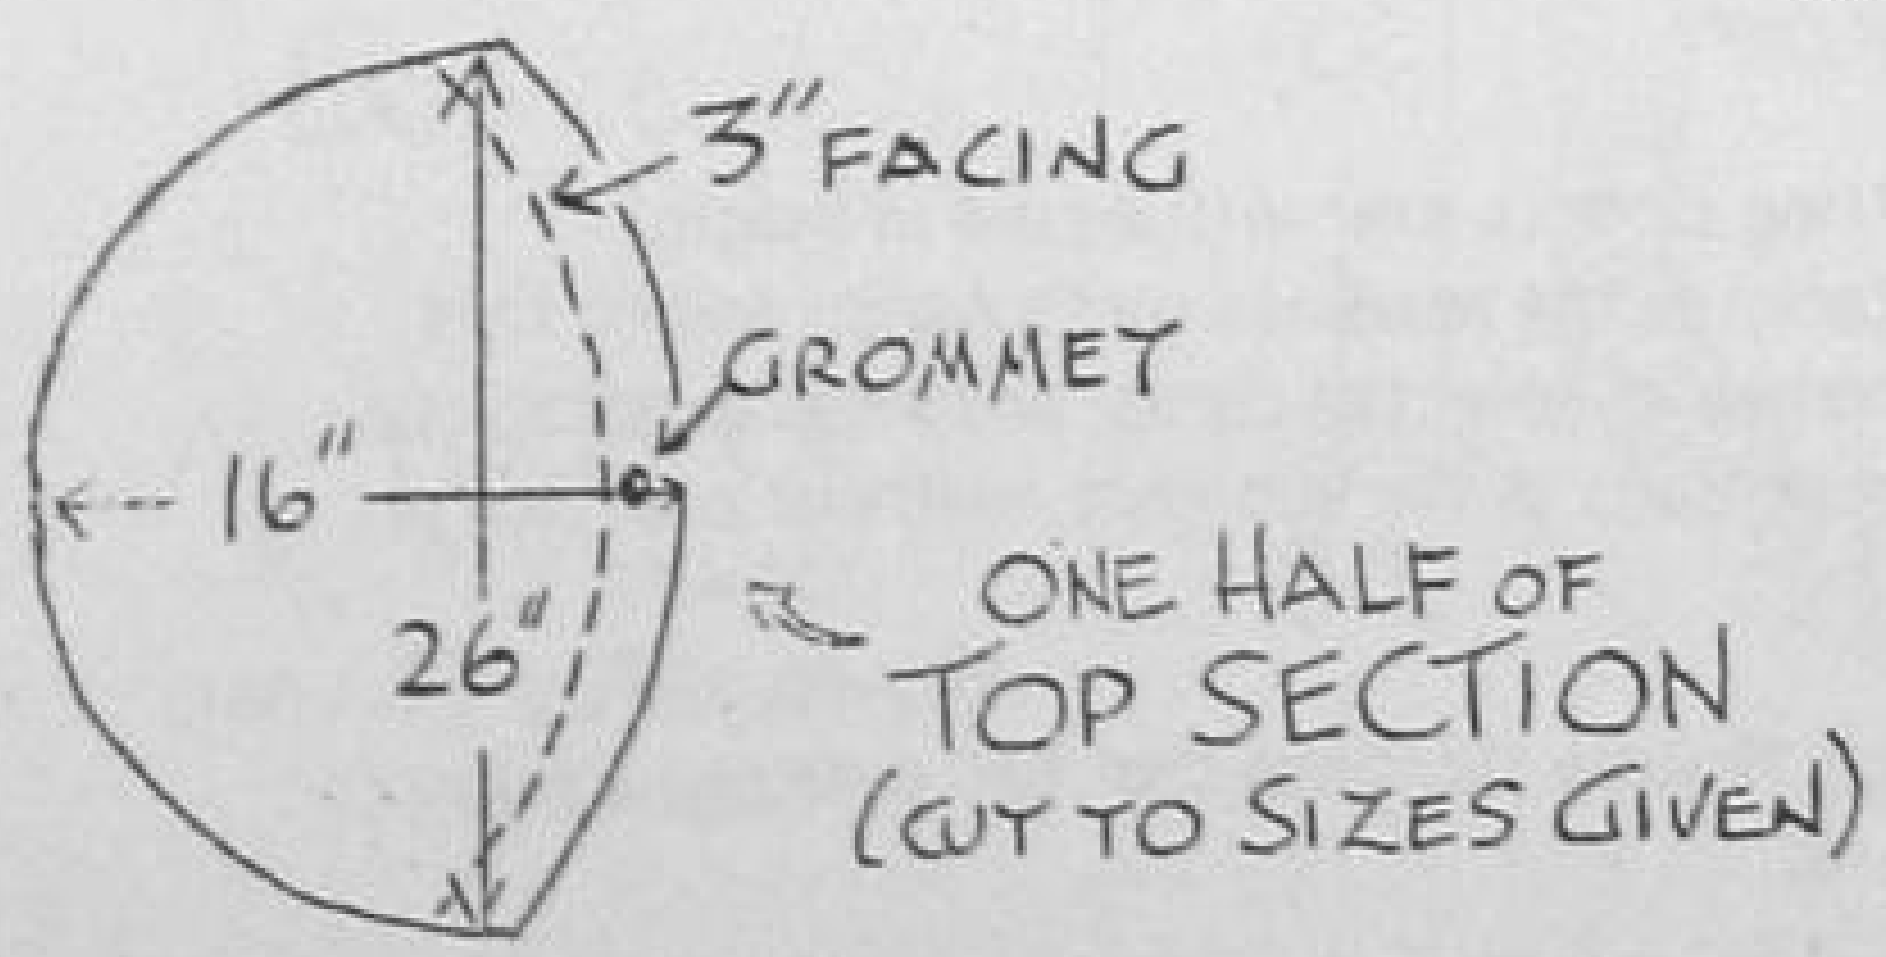 3" FACING
GROMMET
16"
26"
ONE HALF OF
TOP SECTION
(CUT TO SIZES GIVEN)